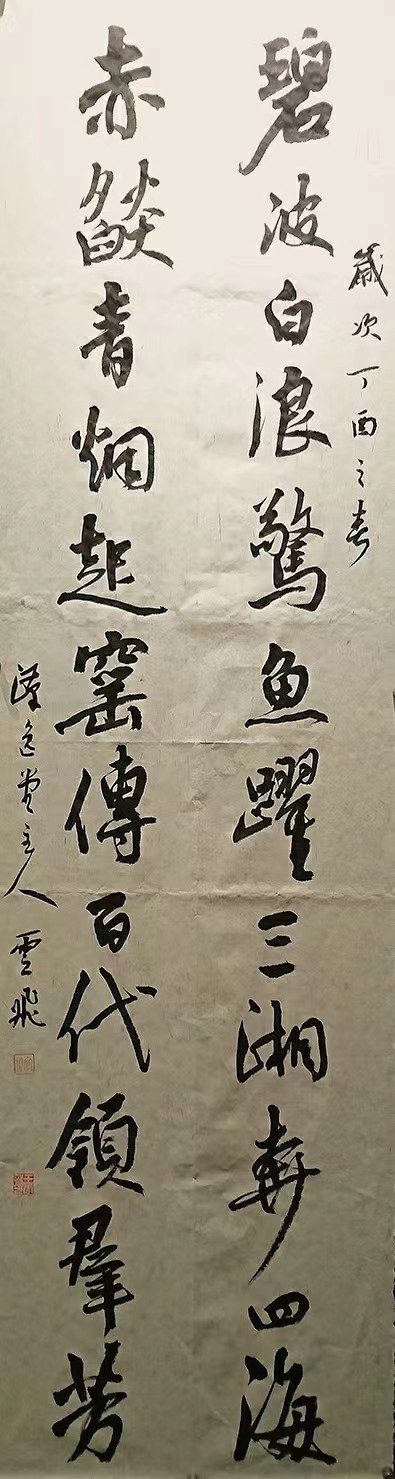 歲次丁酉之春
碧波白浪驚魚躍三湘奔四海
赤燄青烟起窑傳百代領羣芳
堂主人雲飛